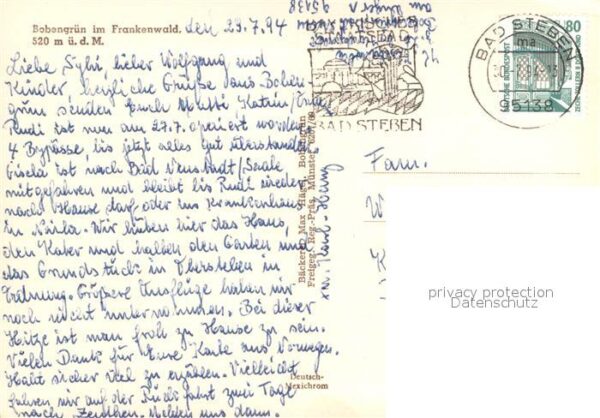 Bobengrün im Frankenwald.
520 m ü. d. M.
den 29.7.94
Liebe Sylvi, lieber Wolfgang und
Kinder, herzliche Grüße aus Boben-
grün senden Euch Mutti, Katrin,
Rudi ist nun am 27.7. operiert worden
4 Bypässe, bis jetzt alles gut überstanden
Gisela ist nach Bad Neustadt/Saale
mitgefahren und bleibt bis Rudi wieder
nach Hause darf oder ins Krankenhaus
in Naila. Wir hüten hier das Haus,
den Kater und halten den Garten und
das Grundstück in Obersteben in
Ordnung. Größere Ausflüge haben wir
noch nicht unternommen. Bei dieser
Hitze ist man froh zu Hause zu sein.
Vielen Dank für Eure Karte aus Norwegen.
Habt sicher viel zu erzählen. Vielleicht
fahren wir auf der Rückfahrt zwei Tage
nach Zeuthen. Melden uns dann.
Bäckerei Max Hägel, Bobengrün
Freigeg. Reg.-Präs. Münster
Deutsch-
Mexichrom
BAD STEBEN
BAD STEBEN
95138
80
DEUTSCHE BUNDESPOST
95138
Fam.
W
K
privacy protection
Datenschutz